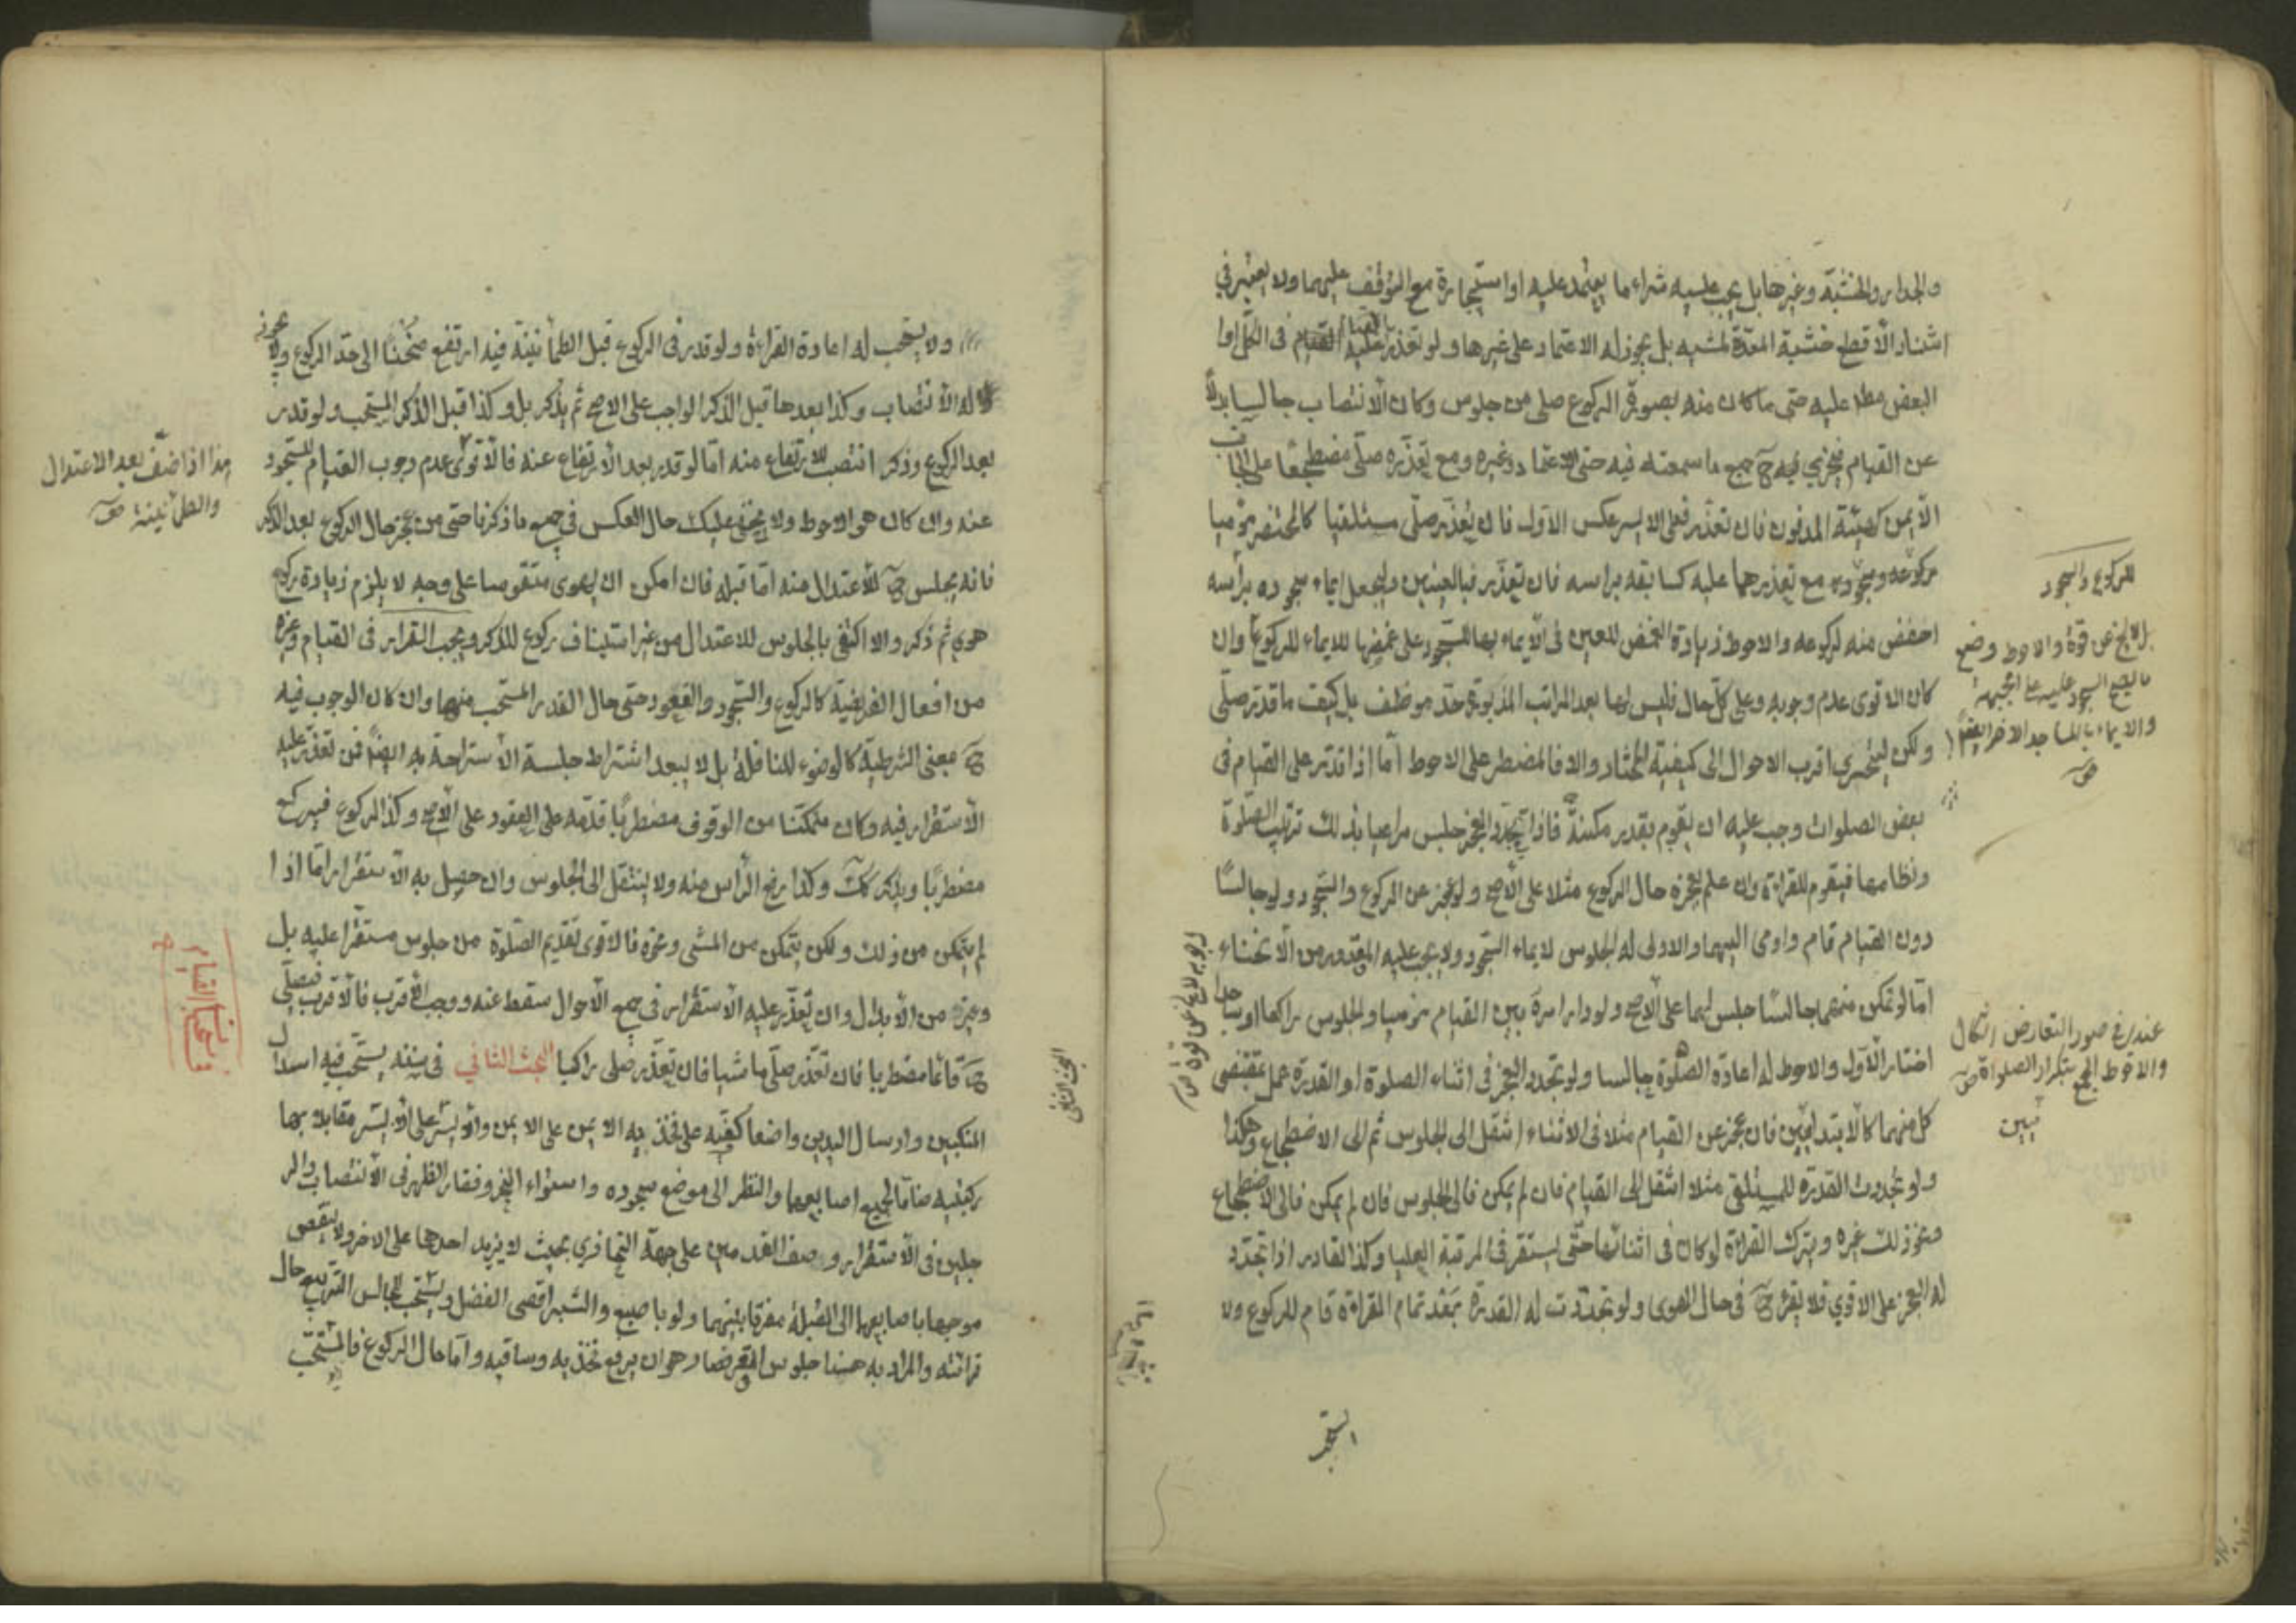 والجدار والخشبة وغيرها بل يجب عليه شراء ما يعتمد عليه او استيجارة مع التوقف عليهما ولا يعتبر في
اسناد الاقطع خشبة المعدة لمشيه بل يجوز له الاعتماد على غيرها ولو تعذر عليه القيام في الكل او
البعض مط عليه حتى ما كان منه بصورة الركوع صلى من جلوس وكان الانتصاب جالسا بدلا
عن القيام فيجزي فيه ح جميع ما سمعته فيه حتى الاعتماد وغيره ومع تعذره صلى مضطجعا على الجانب
الايمن كهيئة المدفون فان تعذر فعلى الايسر عكس الاول فان تعذر صلى مستلقيا كالمحتضر موميا
لركوعه وسجوده مع تعذرهما عليه كسابقه براسه فان تعذر فبالعينين وليجعل ايماء سجوده براسه
اخفض منه لركوعه والاحوط زيادة الغمض للعين في الايماء بها للسجود على غمضها للايماء للركوع وان
كان الاقوى عدم وجوبه وعلى كل حال فليس لها بعد المراتب المذبورة حد موظف بل كيف ما قدر صلى
ولكن ليتحرى اقرب الاحوال الى كيفية المختار والا فالمضطر على الاحوط اما اذا قدر على القيام في
بعض الصلوات وجب عليه ان يقوم بقدر مكنته فاذا تجدد العجز جلس مراعيا بذلك ترتيب الصلوة
ونظامها فيقوم للقراءة وان علم بعجزه حال الركوع مثلا على الاصح ولو عجز عن الركوع والسجود ولو جالسا
دون القيام قام واومى اليهما والاولى له الجلوس لايماء السجود ولا يجب عليه المقدور من الانحناء
اما لو تمكن منهما جالسا جلس لهما على الاصح ولو دار امره بين القيام موميا والجلوس راكعا او ساجدا
اختار الاول والاحوط له اعادة الصلوة جالسا ولو تجدد العجز في اثناء الصلوة او القدرة عمل بمقتضى
كل منهما كالابتدائين فان عجز عن القيام مثلا في الاثناء انتقل الى الجلوس ثم الى الاضطجاع وهكذا
ولو تجددت القدرة للمستلقي مثلا انتقل الى القيام فان لم يمكن فالى الجلوس فان لم يمكن فالى الاضطجاع
ونحو ذلك غيره ويترك القراءة لو كان في اثنائها حتى يستقر في المرتبة العليا وكذا القادر اذا تجدد
له العجز على الاقوي فلا يقرئ ح في حال الهوى ولو تجددت له القدرة بعد تمام القراءة قام للركوع ولا
للركوع والسجود
بل لا يخ عن قوة والاحوط وضع
ما يصح السجود عليه على الجبهة
والايماء بالمساجد الاخر ايضا
عندي في صور التعارض اشكال
والاحوط الجمع بتكرار الصلواة
ولا يستحب له اعادة القراءة ولو قدر في الركوع قبل الطمأنينة فيه ارتفع منحنيا الى حد الركوع ولا يجوز
له الانتصاب وكذا بعدها قبل الذكر الواجب على الاصح ثم يذكر بل وكذا قبل الذكر المستحب ولو قدر
بعد الركوع وذكر انتصب للارتفاع منه اما لو قدر بعد الارتفاع عنه فالاقوى عدم وجوب القيام للسجود
عنه وان كان هو الاحوط ولا يخفى عليك حال العكس في جميع ما ذكرنا حتى من عجز حال الركوع بعد الذكر
فانه يجلس ح للاعتدال منه اما قبله فان امكن ان يهوى متقوسا على وجه لا يلزم زيادة ركوع
هوى ثم ذكر والا اكتفى بالجلوس للاعتدال من غير استيناف ركوع للذكر ويجب القرار في القيام وغيره
من افعال الفريضة كالركوع والسجود والقعود حتى حال القدر المستحب منها وان كان الوجوب فيه
ح بمعنى الشرطية كالوضوء للنافلة بل لا يبعد اشتراط جلسة الاستراحة به ايضا فمن تعذر عليه
الاستقرار فيه وكان متمكنا من الوقوف مضطربا قدمه على العقود على الاصح وكذا الركوع فيركع
مضطربا ويذكر كك وكذا رفع الراس منه ولا ينتقل الى الجلوس وان حصل به الاستقرار اما اذا
لم يتمكن من ذلك ولكن يتمكن من المشى وغيره فالاقوى تقديم الصلوة من جلوس مستقرا عليه بل
وغيره من الابدال وان تعذر عليه الاستقرار في جميع الاحوال سقط عنه ووجب الاقرب فالاقرب فيصلي
ح قائما مضطربا فان تعذر صلى ماشيا فان تعذر صلى راكبا البحث الثاني في سننه يستحب فيه اسدال
المنكبين وارسال اليدين واضعا كفيه على فخذيه الايمن على الايمن والايسر على الايسر مقابلا بهما
ركبتيه ضاما لجميع اصابعهما والنظر الى موضع سجوده واستواء النحر وفقار الظهر في الانتصاب والر
جلين في الاستقرار وصف القدمين على جهة التحاذي بحيث لا يزيد احدهما على الاخر ولا ينقص
موجها باصابعهما الى القبلة مفرقا بينهما ولو باصبع والشبر اقصى الفضل ويستحب للجالس التربيع حال
قرائته والمراد به هنا جلوس القرفصا وهو ان يرفع فخذيه وساقيه واما حال الركوع فالمستحب
هذا اذا ضعف بعد الاعتدال
والطمأنينة
مستحبات القيام
البحث الثاني